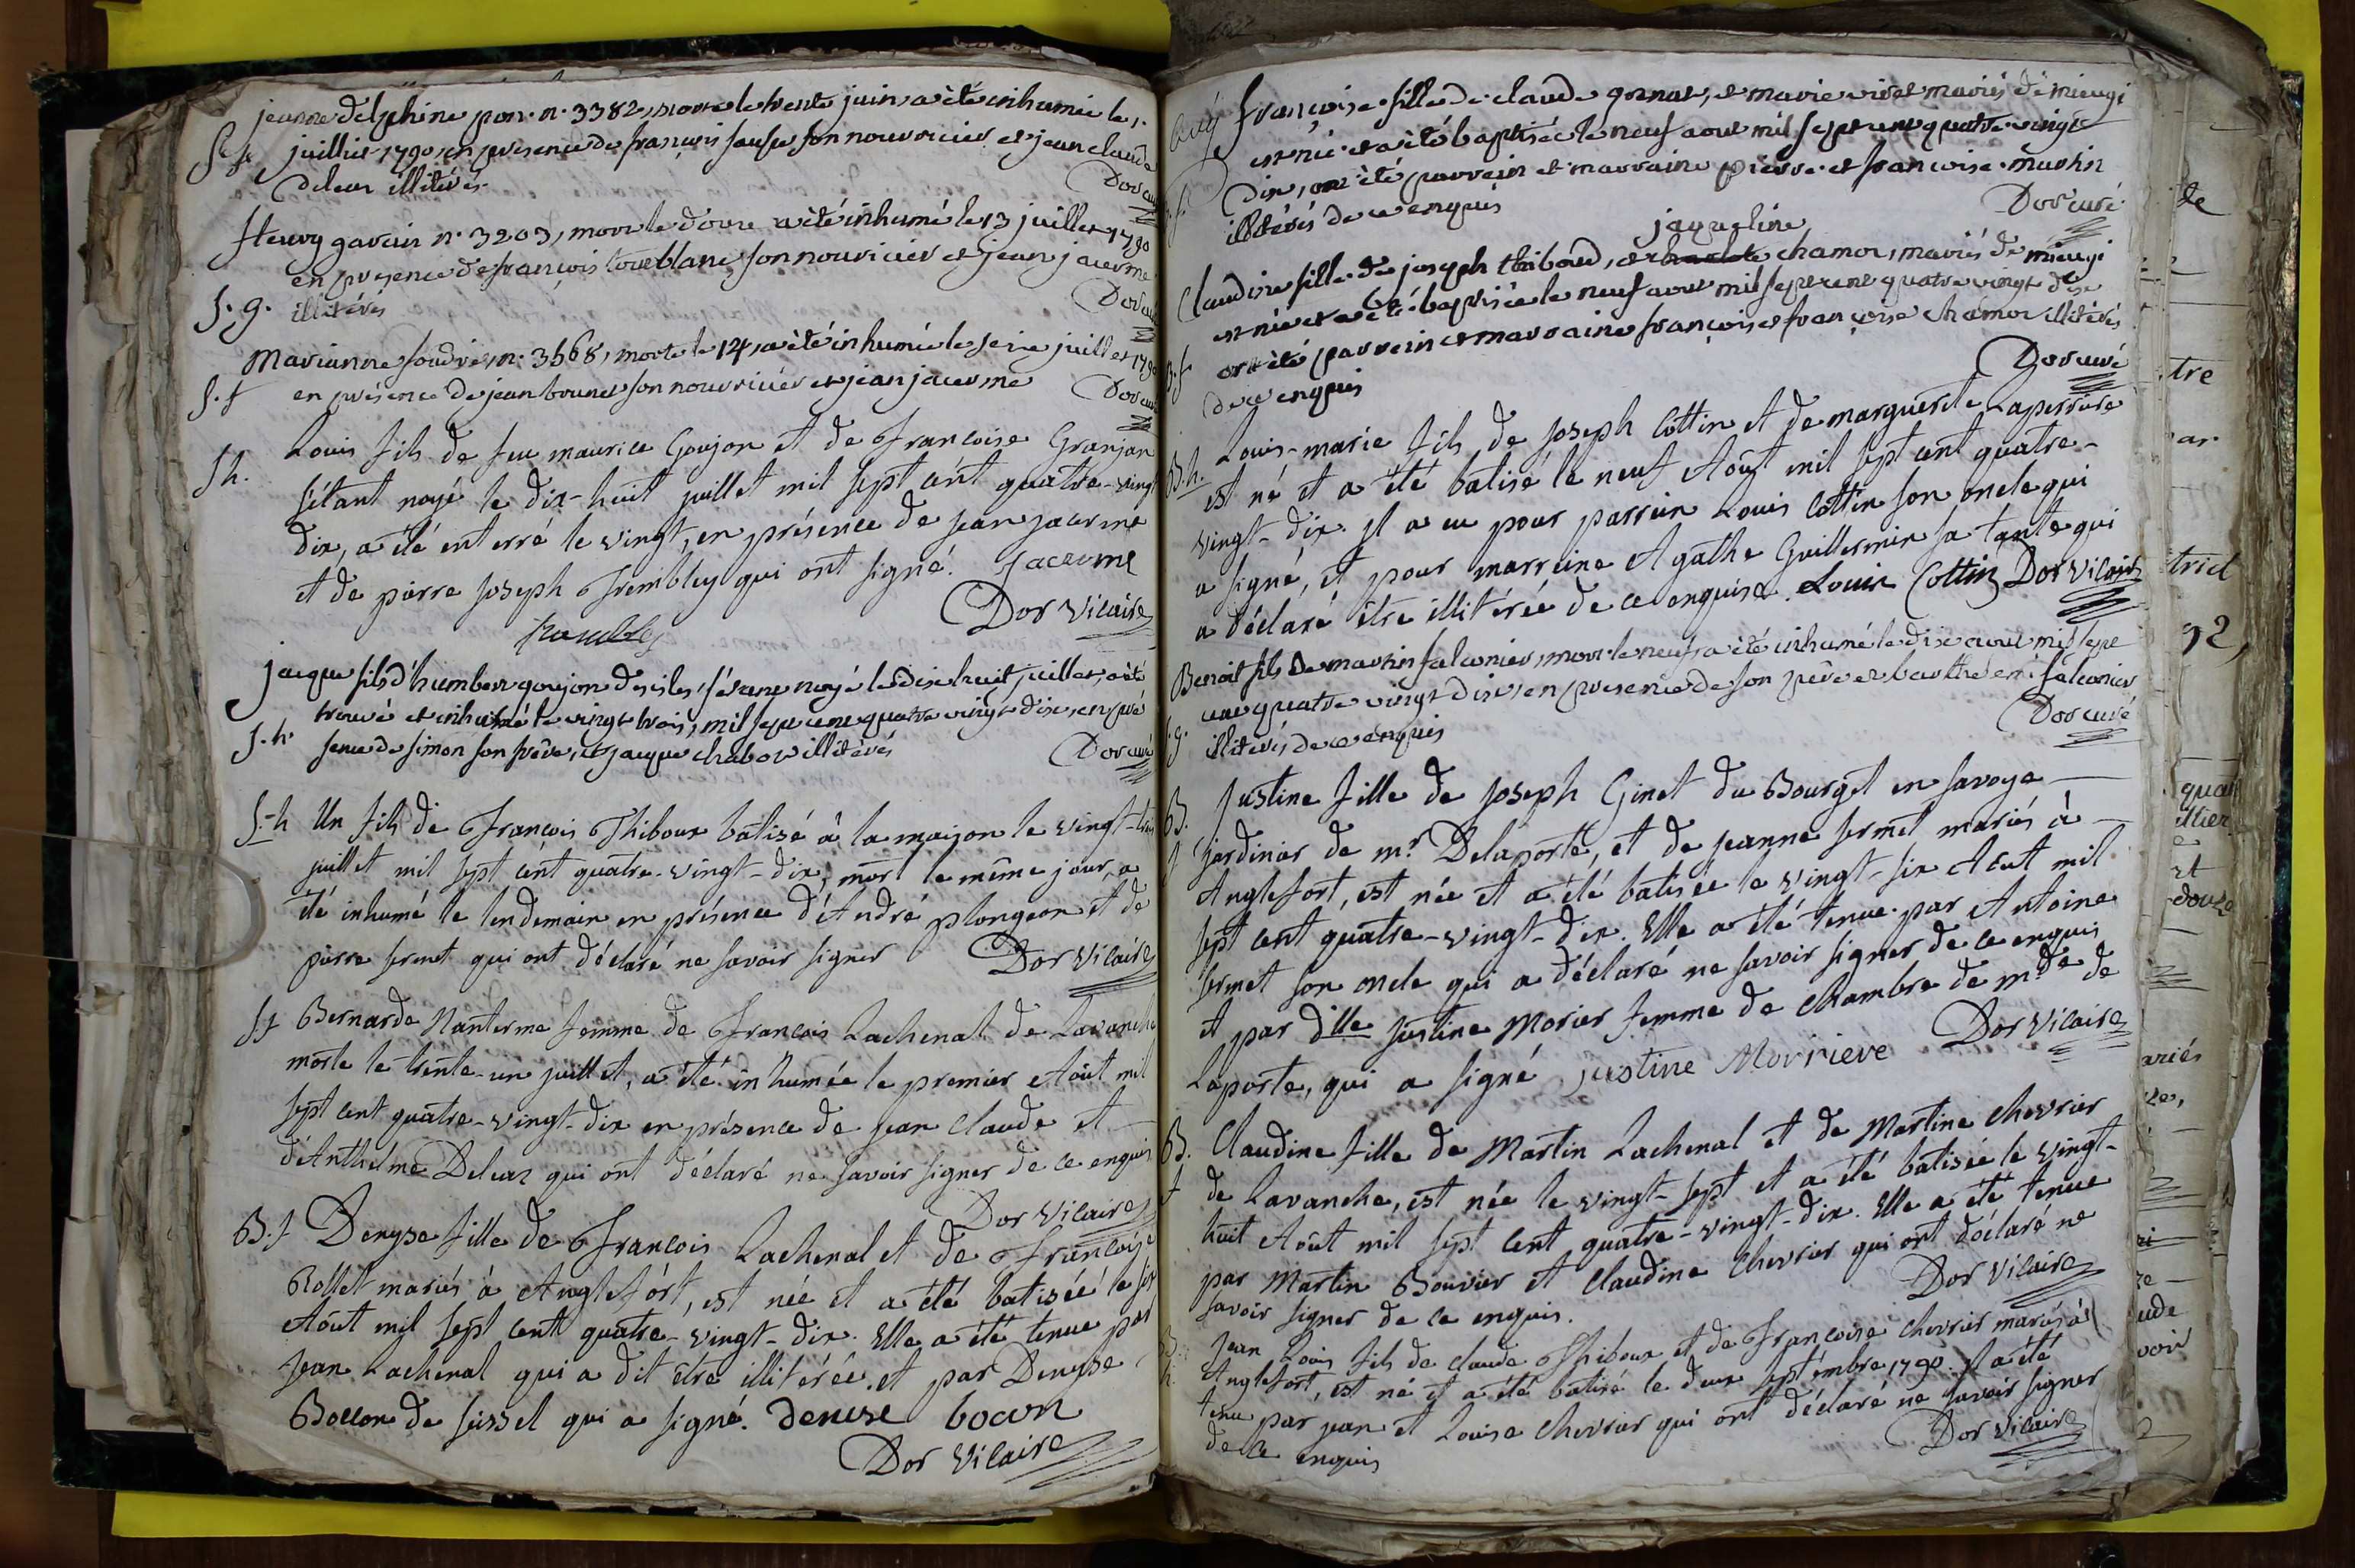 jeanne delphine pon. n. 3382, morte le trente juin, a été inhumée le 1.
S. f. juillier 1790, en presence de françois faufe son nourricier et jean claude
deleaz illitérés. Dor curé
Henry garain n. 3203, mort le douze a été inhumé le 13 juillet 1790
en presence de françois toublanc son nourricier et jean jacerme
S. g. illitérés Dor curé
Marianne foudre, n. 3568, morte le 14, a été inhumée le seize juillet 1790
S. f en présence de jean brunet son nourricier et jean jacerme Dor curé
Louis fils de feu maurice Goujon et de Francoise Granjon
S h. s'étant noyé le dix-huit juillet mil sept cent quatre-vingt
dix, a été enterré le vingt, en présence de jean jacerme
et de pierre joseph Trembley qui ont signé. Jacerme
Trembley Dor Vicaire
jacque fils d'humbert goujon des iles, s'étant noyé le dix huit juillet, a été
trouvé et inhumé le vingt trois, mil sept cent quatre vingt dix, en pré
S. h. sence de simon son frêre, et jacque chabot illitérés Dor curé
S. h Un fils de François Thiboux batisé à la maison le vingt-trois
juillet mil sept cent quatre-vingt-dix, mort le même jour, a
été inhumé le lendemain en présence d'André plongeon et de
pierre sermet qui ont déclaré ne savoir signer Dor Vicaire
S f Bernarde Nanterme femme de François Lachenal de Lavanche
morte le trente-un juillet, a été inhumée le premier Août mil
sept cent quatre-vingt-dix en présence de jean Claude et
d'Anthelme Deleaz qui ont déclaré ne savoir signer de ce enquis
Dor Vicaire
B. f Denyse fille de François Lachenal et de Françoise
Rollet mariés à Anglefort, est née et a été batisée le six
Août mil sept cent quatre-vingt-dix. Elle a été tenue par
Jean Lachenal qui a dit être illitérée, et par Denyse
Bocon de seissel qui a signé. denise bocon
Dor Vicaire
Françoise fille de claude gonnat, et marie viret mariés de mieugi
est née et a été baptisée le neuf aout mil sept cent quatre vingt
dix, ont été parrein et marraine pierre et françoise martin
illitérés de ce enquis Dor curé
jaqueline
Claudine fille de joseph thiboud, et chamot, mariés de mieugi
est née et a été baptisée le neuf aout mil sept cent quatre vingt dix
B. f ont été parrein et marraine françois et françoise chamot illitérés
de ce enquis Dor curé
Louis-marie fils de joseph Cottin et de marguerite Laperrière
B. h. est né et a été batisé le neuf Août mil sept cent quatre-
vingt-dix. Il a eu pour parrein Louis Cottin son oncle qui
a signé, et pour marreine Agathe Guillermin sa tante qui
a déclaré être illitérée de ce enquise. Louis Cottin Dor Vicaire
Benoit fils de martin falconier, mort le neuf, a été inhumé le dix aout mil sept
cent quatre vingt dix, en presence de son père et barthélemi falconier
S. g. illitérés de ce enquis Dor curé
B. Justine fille de Joseph Ginet du Bourget en savoye
f jardinier de mr. Delaporte, et de jeanne sermet mariés à
Anglefort, est née et a été batisée le vingt-six Août mil
sept cent quatre-vingt-dix. Elle a été tenue par Antoine
sermet son oncle qui a déclaré ne savoir signer de ce enquis
et par dlle justine Morier femme de chambre de mde de
Laporte, qui a signé justine Morriere Dor Vicaire
B. Claudine fille de Martin Lachenal et de Martine Chevrier
f de Lavanche, est née le vingt-sept et a été batisée le vingt-
huit Août mil sept cent quatre-vingt-dix. Elle a été tenue
par Martin Bouvier et Claudine Chevrier qui ont déclaré ne
savoir signer de ce enquis. Dor Vicaire
B. Jean Louis fils de claude Thiboux et de Françoise Chevrier mariés à
h. Anglefort, est né et a été batisé le deux septembre 1790. Il a été
tenu par jean et Louise Chevrier qui ont déclaré ne savoir signer
de ce enquis Dor Vicaire
de
tre
par
trict
92,
quat
et
douze
ariés
ude
voir